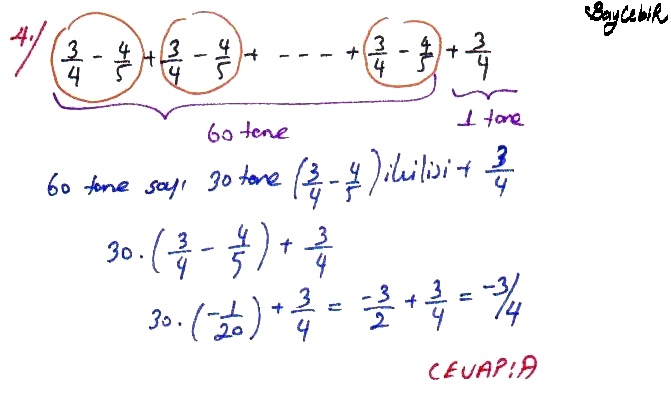 BayCebiR
4./ 3/4 - 4/5 + 3/4 - 4/5 + - - - + 3/4 - 4/5 + 3/4
60 tane 1 tane
60 tane sayı 30 tane (3/4 - 4/5) ikilisi + 3/4
30 . (3/4 - 4/5) + 3/4
30 . (-1/20) + 3/4 = -3/2 + 3/4 = -3/4
CEVAP:A